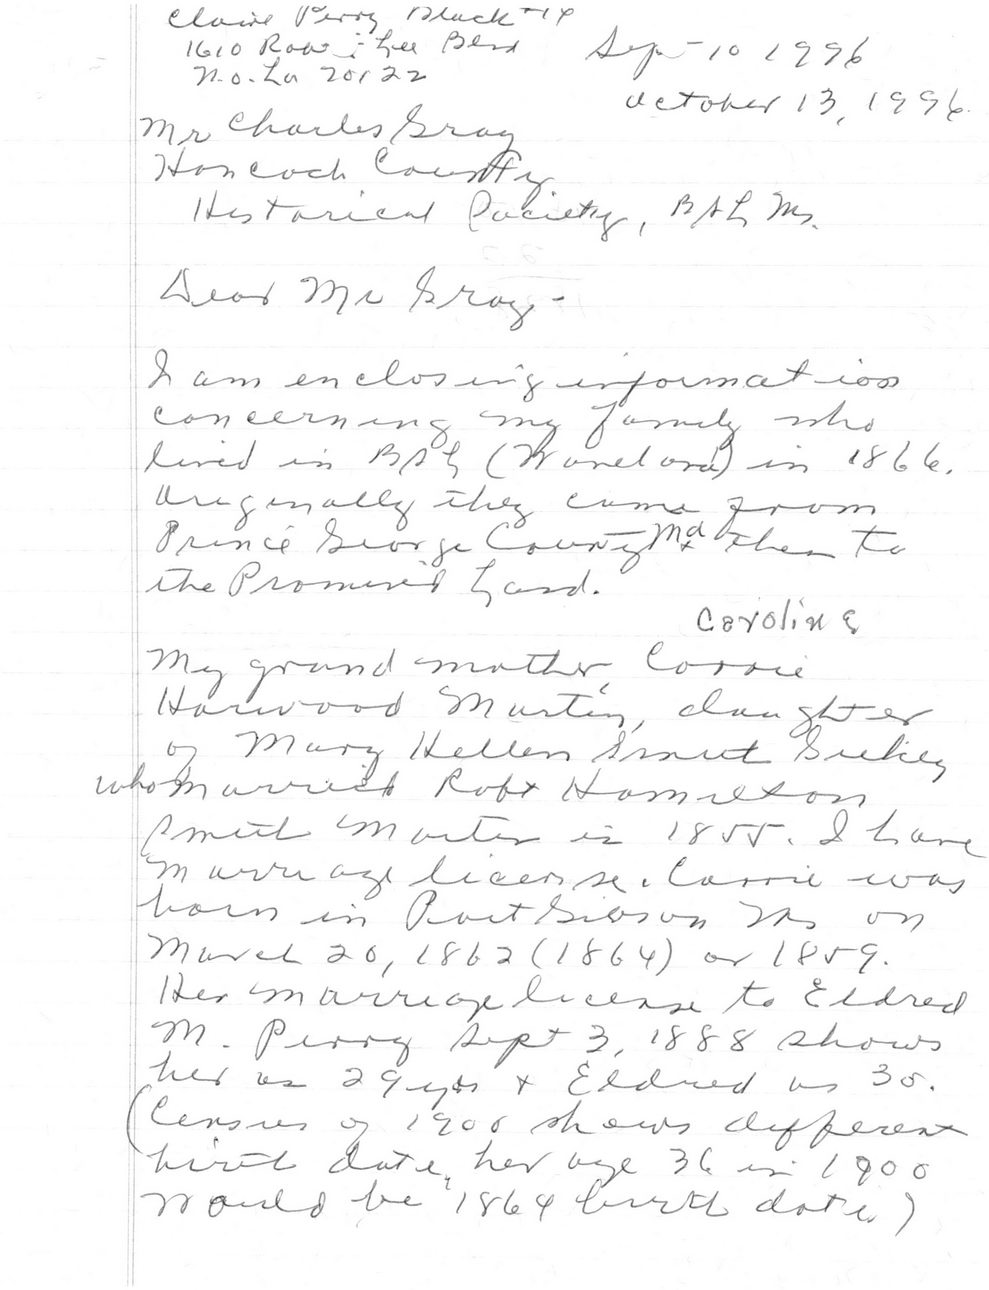 Claire Perry Black #14
1610 Robt. E. Lee Blvd
N.O. La 70122
Sept 10 1996
October 13, 1996
Mr Charles Gray
Hancock County
Historical Society, BSL Ms.
Dear Mr Gray-
I am enclosing information
concerning my family who
lived in BSL (Waveland) in 1866.
Originally they came from
Prince George County Md & then to
the Promised Land.
Caroline
My grand mother, Carrie
Harwood Martin, daughter
of Mary Hellen Smut
who married Robt Hamilton
Smith Martin in 1855. I have
marriage license. Carrie was
born in Port Gibson Ms on
March 20, 1862 (1864) or 1859.
Her marriage license to Eldred
M. Perry Sept 3, 1888 shows
her as 29 yrs & Eldred as 30.
(Census of 1900 shows different
birth date, her age 36 in 1900
would be 1864 birth date.)